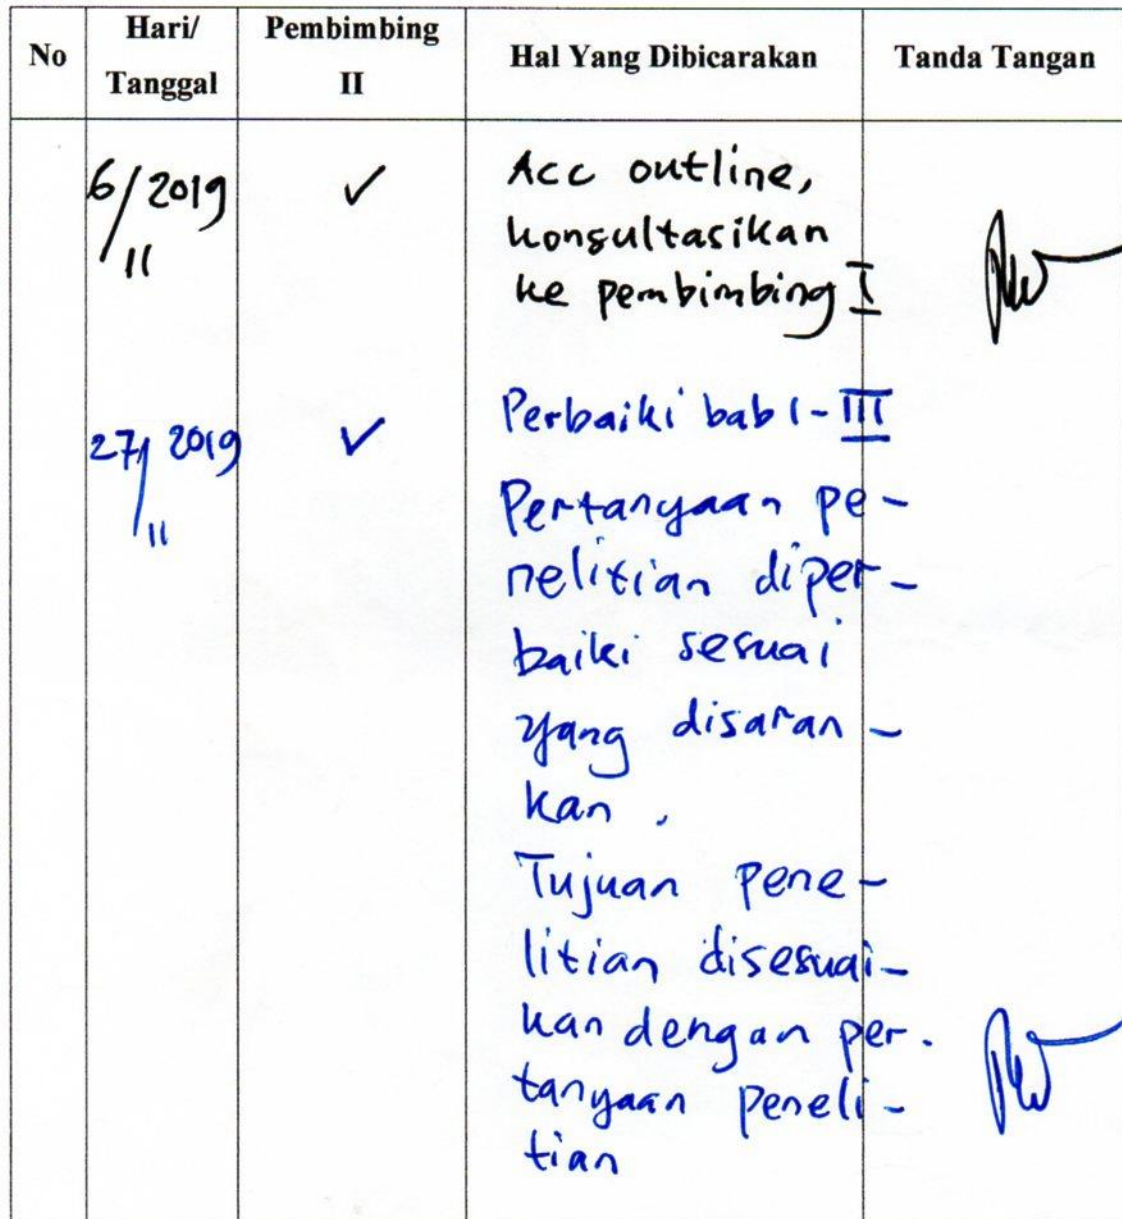 No
Hari/
Tanggal
Pembimbing
II
Hal Yang Dibicarakan
Tanda Tangan
6/2019
/11
✓
Acc outline,
konsultasikan
ke pembimbing I
27/2019
/11
✓
Perbaiki bab I-III
Pertanyaan pe-
nelitian diper-
baiki sesuai
yang disaran-
kan.
Tujuan pene-
litian disesuai-
kan dengan per-
tanyaan peneli-
tian